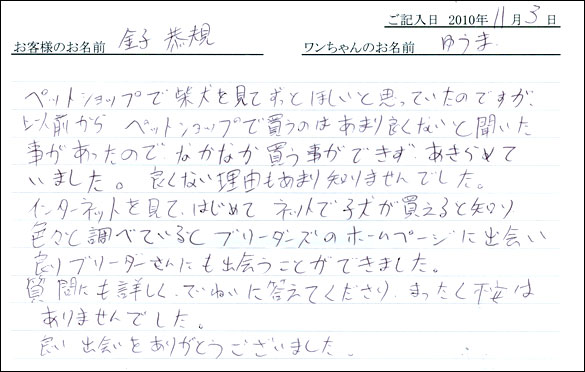 ご記入日 2010年11月3日
お客様のお名前 金子 恭規 ワンちゃんのお名前 ゆうま
ペットショップで柴犬を見てずっとほしいと思っていたのですが、
以前から ペットショップで買うのはあまり良くないと聞いた
事があったので、なかなか買う事ができず、あきらめて
いました。良くない理由もあまり知りませんでした。
インターネットを見て、はじめて ネットで子犬が買えると知り
色々と調べているとブリーダーズのホームページに出会い
良いブリーダーさんにも出会うことができました。
質問にも詳しく、ていねいに答えてくださり、まったく不安は
ありませんでした。
良い出会いをありがとうございました。